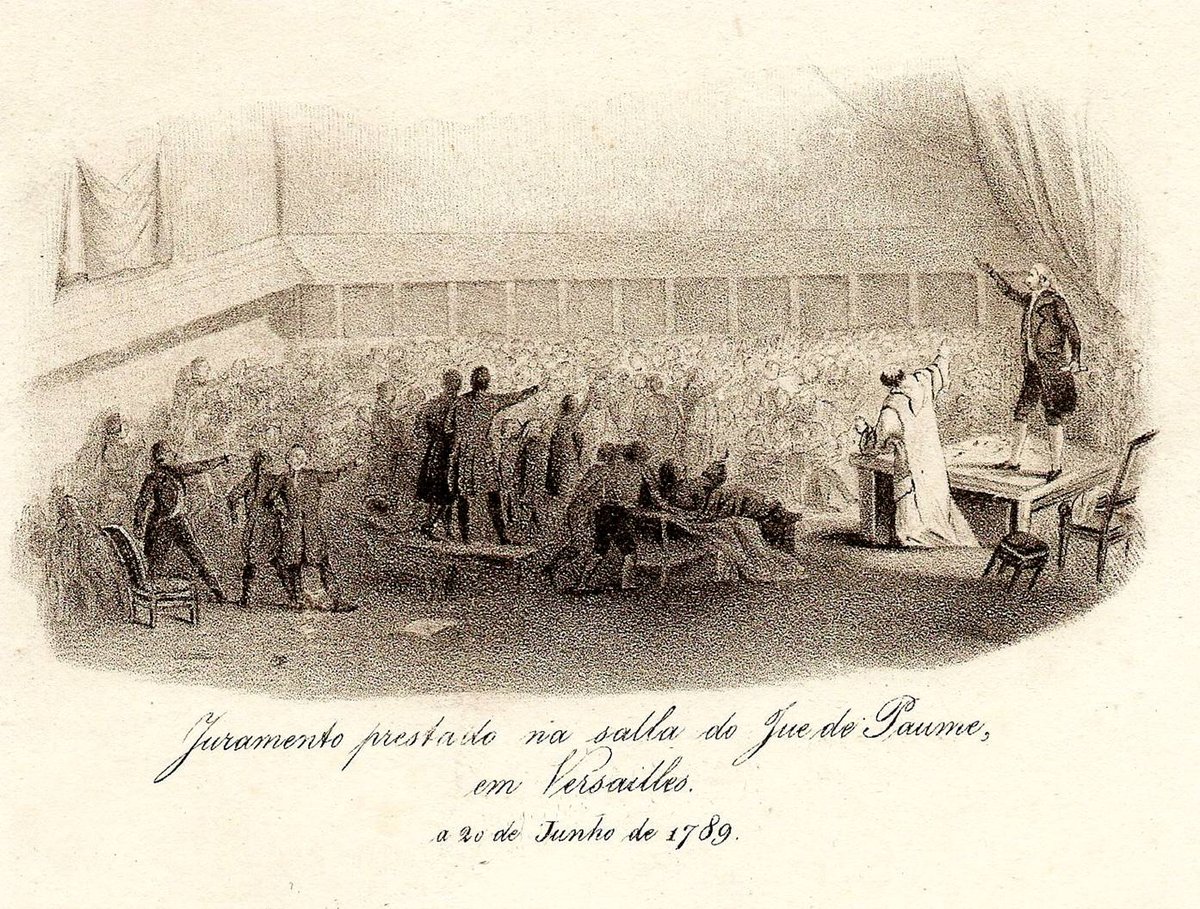 Juramento prestado na salla do Jue de Paume,
em Versailles.
a 20 de Junho de 1789.